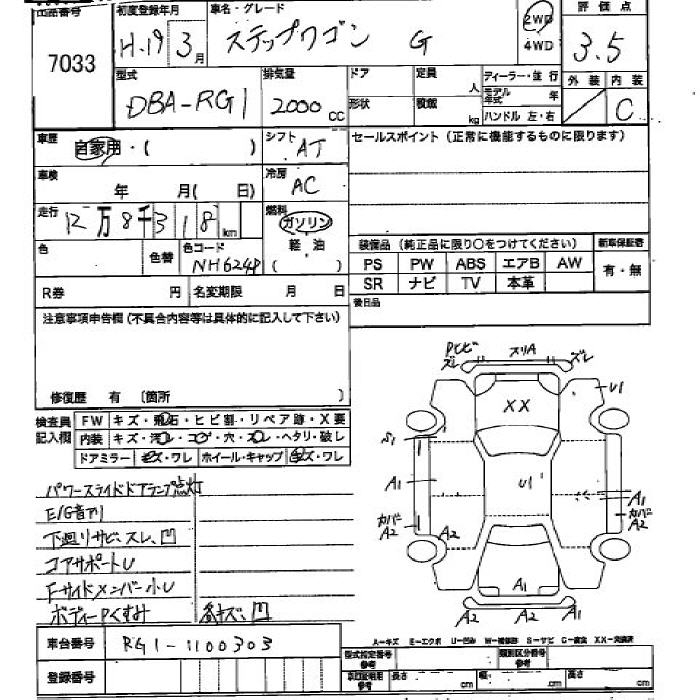 出品番号 初度登録年月 車名・グレード 評価点
7033 H.19 3月 ステップワゴン G 2WD 4WD 3.5
外装 内装
型式 排気量 ドア 定員 人 ディーラー・並行 モデル年式 年
DBA-RG1 2000cc 形状 積載 kg ハンドル 左・右 C
車歴 自家用・( ) シフト AT セールスポイント(正常に機能するものに限ります)
車検 年 月( 日) 冷房 AC
走行 12万8千318km 燃料 ガソリン 軽油 ( )
色 色替 色コード NH624P
装備品(純正品に限り○をつけてください) 新車保証書
PS PW ABS エアB AW 有・無
SR ナビ TV 本革
R券 円 名変期限 月 日 後日品
注意事項申告欄(不具合内容等は具体的に記入して下さい)
修復歴 有 〔箇所 〕
検査員記入欄 FW キズ・飛石・ヒビ割・リペア跡・X要
内装 キズ・汚レ・コゲ・穴・スレ・ヘタリ・破レ
ドアミラー キズ・ワレ ホイール・キャップ キズ・ワレ
パワースライドドアランプ点灯
E/G音アリ
下廻リサビ、スレ、凹
コアサポートU
Fサイドメンバー小U
ボディーPくすみ 各キズ、凹
Pヒビ ズレ スリA ズレ
U1
XX
S1
A1 U1 A1
カバーA2 A2 カバーA2
A1
A2 A2 A1
A-キズ E-エクボ U-凹ミ W-補修跡 S-サビ C-腐食 XX-交換済
車台番号 RG1-1100303
型式指定番号 参考 類別区分番号 参考
登録番号 車庫証明用 参考 長さ cm 幅 cm 高さ cm